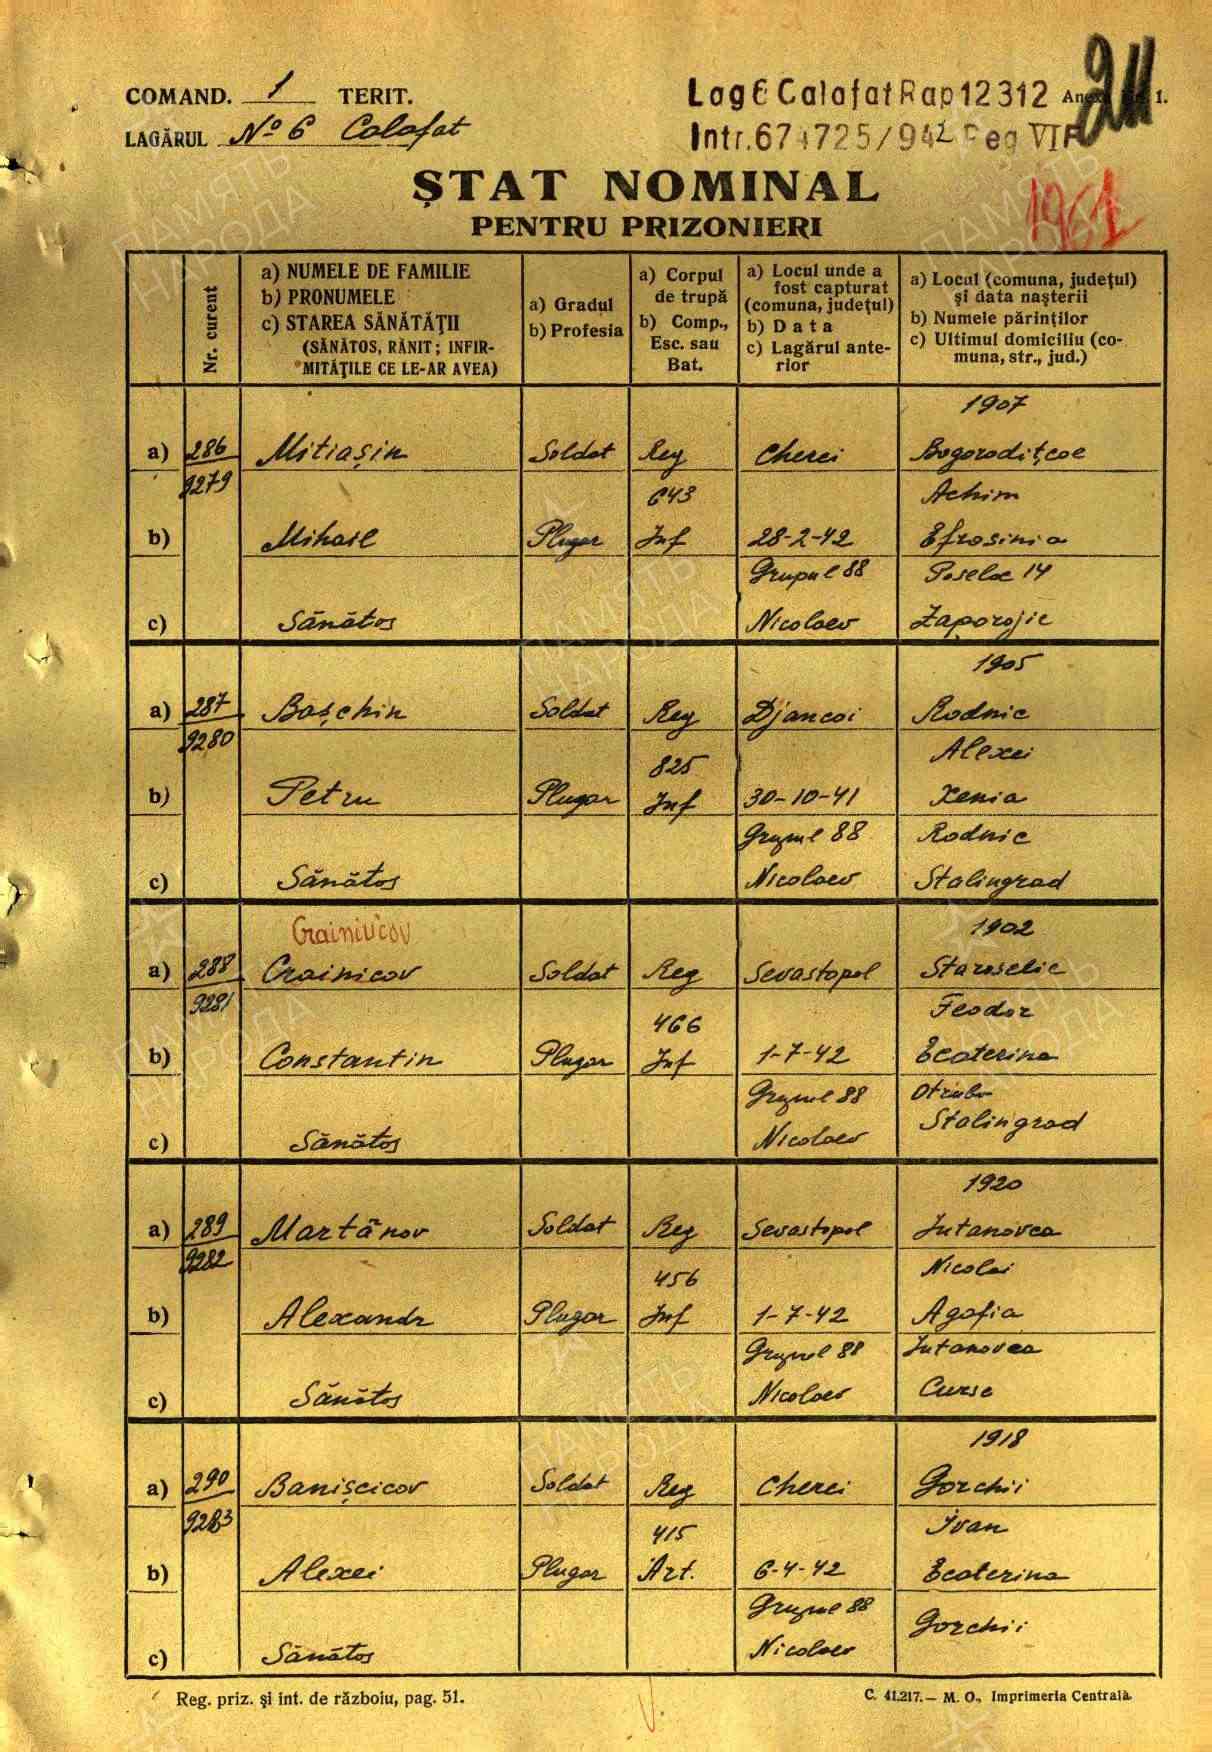 COMAND. 1 TERIT.
LAGĂRUL No 6 Calafat
Lag 6 Calafat Rap 12312 Anexa 1.
Intr. 674725/942 Reg VI F
211
1961
ȘTAT NOMINAL
PENTRU PRIZONIERI
Nr. curent
a) NUMELE DE FAMILIE
b) PRONUMELE
c) STAREA SĂNĂTĂȚII
(SĂNĂTOS, RĂNIT; INFIR-
MITĂȚILE CE LE-AR AVEA)
a) Gradul
b) Profesia
a) Corpul
de trupă
b) Comp.,
Esc. sau
Bat.
a) Locul unde a
fost capturat
(comuna, județul)
b) Data
c) Lagărul ante-
rior
a) Locul (comuna, județul)
și data nașterii
b) Numele părinților
c) Ultimul domiciliu (co-
muna, str., jud.)
1907
a) 286 Mitiașin Soldat Reg Cherci Bogorodițcoe
9279 643 Achim
b) Mihail Plugar Inf 28-2-42 Efrosinia
Grupul 88 Poseloc 14
c) Sănătos Nicolaev Zaporojie
1905
a) 287 Bașchin Soldat Reg Djancoi Rodnic
9280 825 Alexei
b) Petru Plugar Inf 30-10-41 Xenia
Grupul 88 Rodnic
c) Sănătos Nicolaev Stalingrad
Crainiucov 1902
a) 288 Crainicov Soldat Reg Sevastopol Staroselie
9281 466 Feodor
b) Constantin Plugar Inf 1-7-42 Ecaterina
Grupul 88 Otrubo
c) Sănătos Nicolaev Stalingrad
1920
a) 289 Martânov Soldat Reg Sevastopol Iutanovca
9282 456 Nicolai
b) Alexandr Plugar Inf 1-7-42 Agafia
Grupul 88 Iutanovca
c) Sănătos Nicolaev Cursc
1918
a) 290 Banișcicov Soldat Reg Cherci Gorchii
9283 415 Ivan
b) Alexei Plugar Art. 6-4-42 Ecaterina
Grupul 88 Gorchii
c) Sănătos Nicolaev
Reg. priz. și int. de războiu, pag. 51. C. 41.217.— M. O., Imprimeria Centrală.
ПАМЯТЬ
НАРОДА
ПАМЯТЬ
НАРОДА
ПАМЯТЬ
НАРОДА
ПАМЯТЬ
НАРОДА
ПАМЯТЬ
НАРОДА
ПАМЯТЬ
НАРОДА